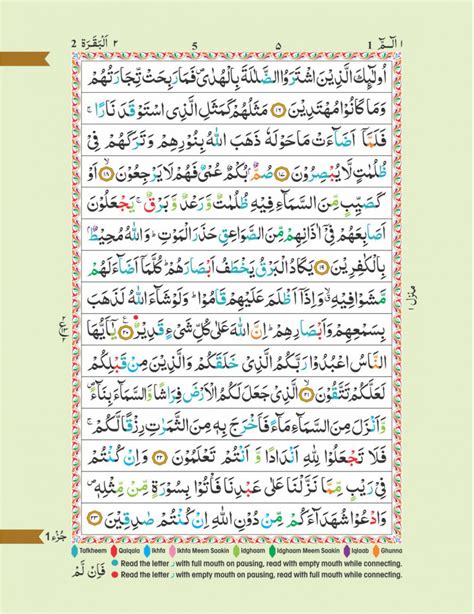 2 اَلْبَقَرَة ٢ 5 ٥ 1 الٓمّٓ ١
اُولٰٓئِكَ الَّذِيْنَ اشْتَرَوُا الضَّلٰلَةَ بِالْهُدٰى فَمَا رَبِحَتْ تِّجَارَتُهُمْ
وَمَا كَانُوْا مُهْتَدِيْنَ ۝١٦ مَثَلُهُمْ كَمَثَلِ الَّذِى اسْتَوْقَدَ نَارًا ۚ
فَلَمَّآ اَضَآءَتْ مَا حَوْلَهٗ ذَهَبَ اللّٰهُ بِنُوْرِهِمْ وَ تَرَكَهُمْ فِيْ
ظُلُمٰتٍ لَّا يُبْصِرُوْنَ ۝١٧ صُمٌّۢ بُكْمٌ عُمْيٌ فَهُمْ لَا يَرْجِعُوْنَ ۝١٨ اَوْ
كَصَيِّبٍ مِّنَ السَّمَآءِ فِيْهِ ظُلُمٰتٌ وَّرَعْدٌ وَّبَرْقٌ ۚ يَجْعَلُوْنَ
اَصَابِعَهُمْ فِيْٓ اٰذَانِهِمْ مِّنَ الصَّوَاعِقِ حَذَرَ الْمَوْتِ ؕ وَاللّٰهُ مُحِيْطٌۢ
بِالْكٰفِرِيْنَ ۝١٩ يَكَادُ الْبَرْقُ يَخْطَفُ اَبْصَارَهُمْ ؕ كُلَّمَآ اَضَآءَ لَهُمْ
مَّشَوْا فِيْهِ ۙ وَاِذَآ اَظْلَمَ عَلَيْهِمْ قَامُوْا ؕ وَلَوْ شَآءَ اللّٰهُ لَذَهَبَ
بِسَمْعِهِمْ وَاَبْصَارِهِمْ ؕ اِنَّ اللّٰهَ عَلٰى كُلِّ شَيْءٍ قَدِيْرٌ ۝٢٠ يٰٓاَيُّهَا
النَّاسُ اعْبُدُوْا رَبَّكُمُ الَّذِيْ خَلَقَكُمْ وَالَّذِيْنَ مِنْ قَبْلِكُمْ
لَعَلَّكُمْ تَتَّقُوْنَ ۝٢١ الَّذِيْ جَعَلَ لَكُمُ الْاَرْضَ فِرَاشًا وَّالسَّمَآءَ بِنَآءً ۪
وَّاَنْزَلَ مِنَ السَّمَآءِ مَآءً فَاَخْرَجَ بِهٖ مِنَ الثَّمَرٰتِ رِزْقًا لَّكُمْ ۚ
فَلَا تَجْعَلُوْا لِلّٰهِ اَنْدَادًا وَّ اَنْتُمْ تَعْلَمُوْنَ ۝٢٢ وَاِنْ كُنْتُمْ
فِيْ رَيْبٍ مِّمَّا نَزَّلْنَا عَلٰى عَبْدِنَا فَاْتُوْا بِسُوْرَةٍ مِّنْ مِّثْلِهٖ ۪
وَادْعُوْا شُهَدَآءَكُمْ مِّنْ دُوْنِ اللّٰهِ اِنْ كُنْتُمْ صٰدِقِيْنَ ۝٢٣
منزل ١
جُزْء 1
Tafkheem Qalqala Ikhfa Ikhfa Meem Saakin Idghaam Idghaam Meem Saakin Iqlaab Ghunna
Read the letter ر with full mouth on pausing, read with empty mouth while connecting.
Read the letter ر with empty mouth on pausing, read with full mouth while connecting.
فَاِنْ لَّمْ